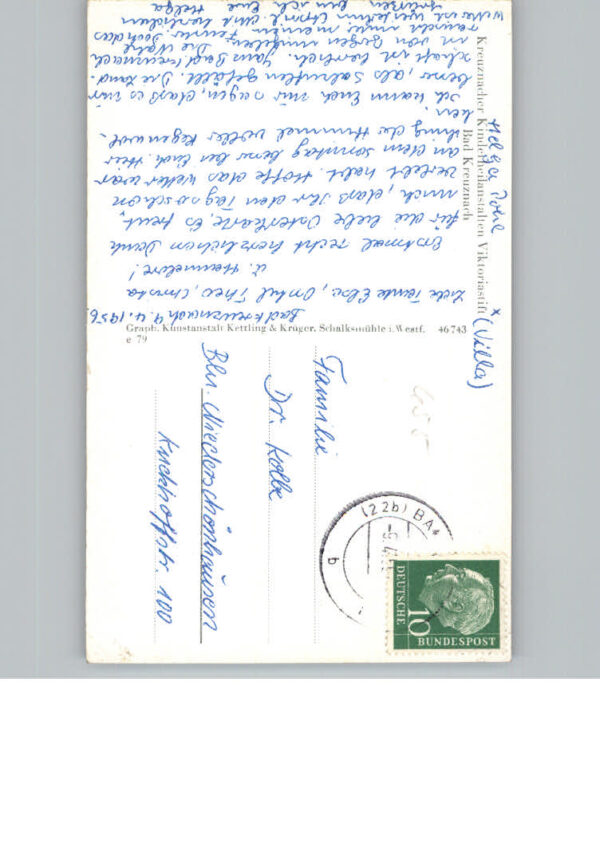 Kreuznacher Kinderheilanstalten Viktoriastift
Bad Kreuznach
Helga
x (Villa)
Bad Kreuznach 9.4.1956.
Liebe Tante Else, Onkel Theo, Christa
u. Hannelore!
Erstmal recht herzlichen Dank
für die liebe Osterkarte. Es freut
mich, daß Ihr den Tag so schön
verlebt habt. Hoffe das Wetter war
an dem Sonntag bene bei Euch. Hier
hing der Himmel voller Regenwol-
ken.
Ich kann Euch nur sagen, daß es mir
bene, als gefällt. Die Land-
schaft ist herrlich. Ganz Bad Kreuznach
ist von Bergen umgeben. Die Nahe
rauscht unter meinem Fenster. Doch das
Wetter ist Mit herzlichen
Grüßen bin ich Eure Helga
Graph. Kunstanstalt Kettling & Krüger, Schalksmühle i. Westf. 46 743
e 79
Familie
Dr. Kolbe
Bln. Niederschönhausen
Kuckhoffstr. 100
(22b) BA
q
DEUTSCHE
BUNDESPOST
10